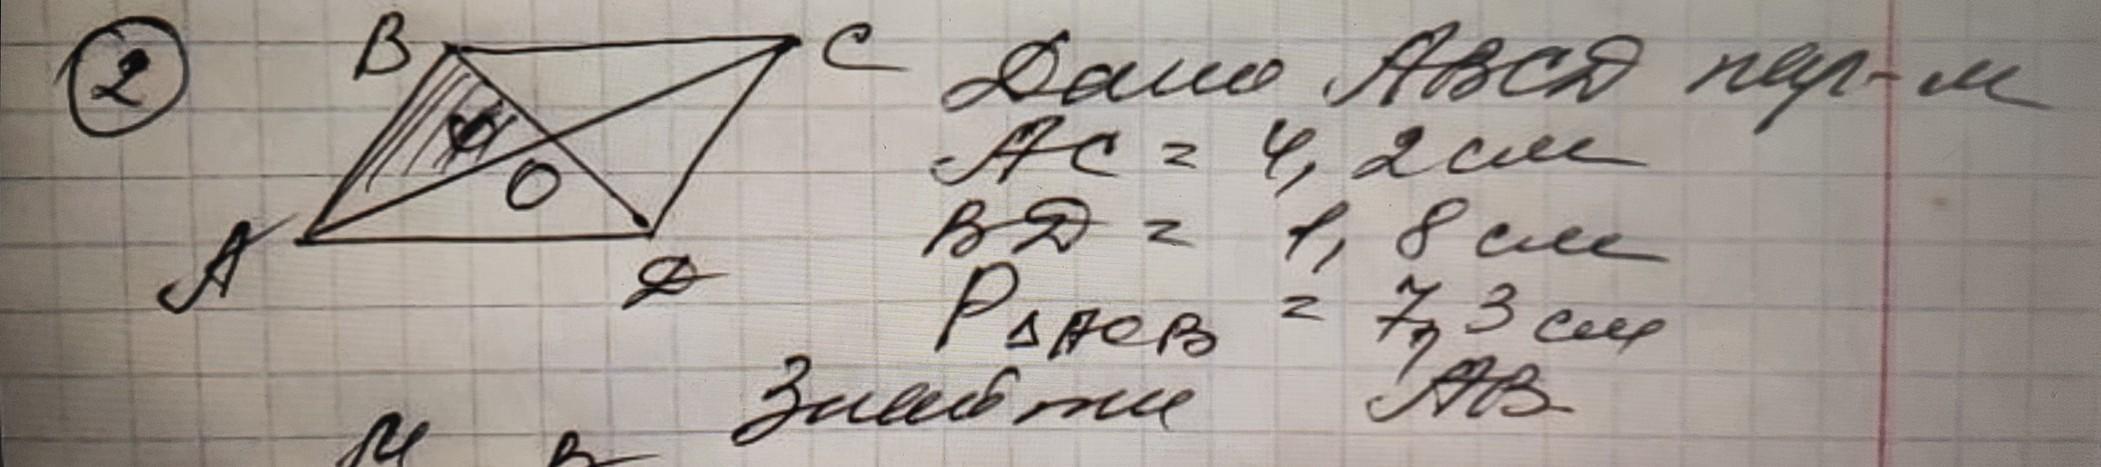 2
B
C
O
A
D
Дано ABCD пар-м
AC = 4,2 см
BD = 1,8 см
P△AOB = 7,3 см
Знайти AB
M B